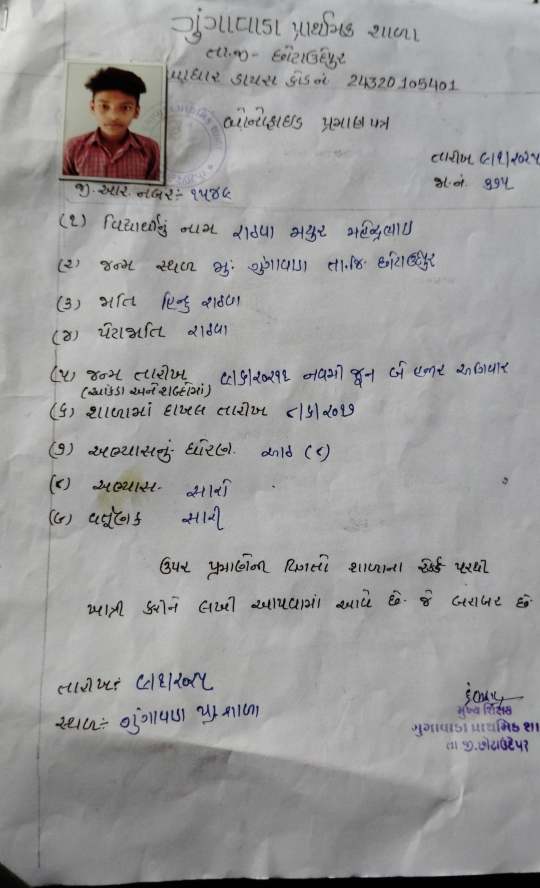 ગુંગાવાડા પ્રાથમિક શાળા
તા.જી- છોટાઉદેપુર
ડાયસ કોડ નં 24320105401
બોનોફાઇડ પ્રમાણપત્ર
તારીખ ૯/૧/૨૦૨૫
જા.નં. ૧૧૫
જી.આર. નંબર:- ૧૫૪૯
(૧) વિદ્યાર્થીનું નામ રાઠવા મયુર મહેન્દ્રભાઇ
(૨) જન્મ સ્થળ મું. ગુંગાવાડા તા.જિ. છોટાઉદેપુર
(૩) જાતિ હિન્દુ રાઠવા
(૪) પેટાજાતિ રાઠવા
(૫) જન્મ તારીખ ૯/૬/૨૦૧૧ નવમી જૂન બે હજાર અગિયાર
(આંકડા અને શબ્દોમાં)
(૬) શાળામાં દાખલ તારીખ ૮/૬/૨૦૧૭
(૭) અભ્યાસનું ધોરણ. આઠ (૮)
(૮) અભ્યાસ- સારો
(૯) વર્તૂણક સારી
ઉપર પ્રમાણેની વિગતો શાળાના રેકર્ડ પરથી
ખાત્રી કરીને લખી આપવામાં આવે છે. જે બરાબર છે.
તારીખ: ૯/૧/૨૦૨૫
સ્થળ:- ગુંગાવાડા પ્રા શાળા
મુખ્ય શિક્ષક
ગુંગાવાડા પ્રાથમિક શા
તા જી.છોટાઉદેપુર